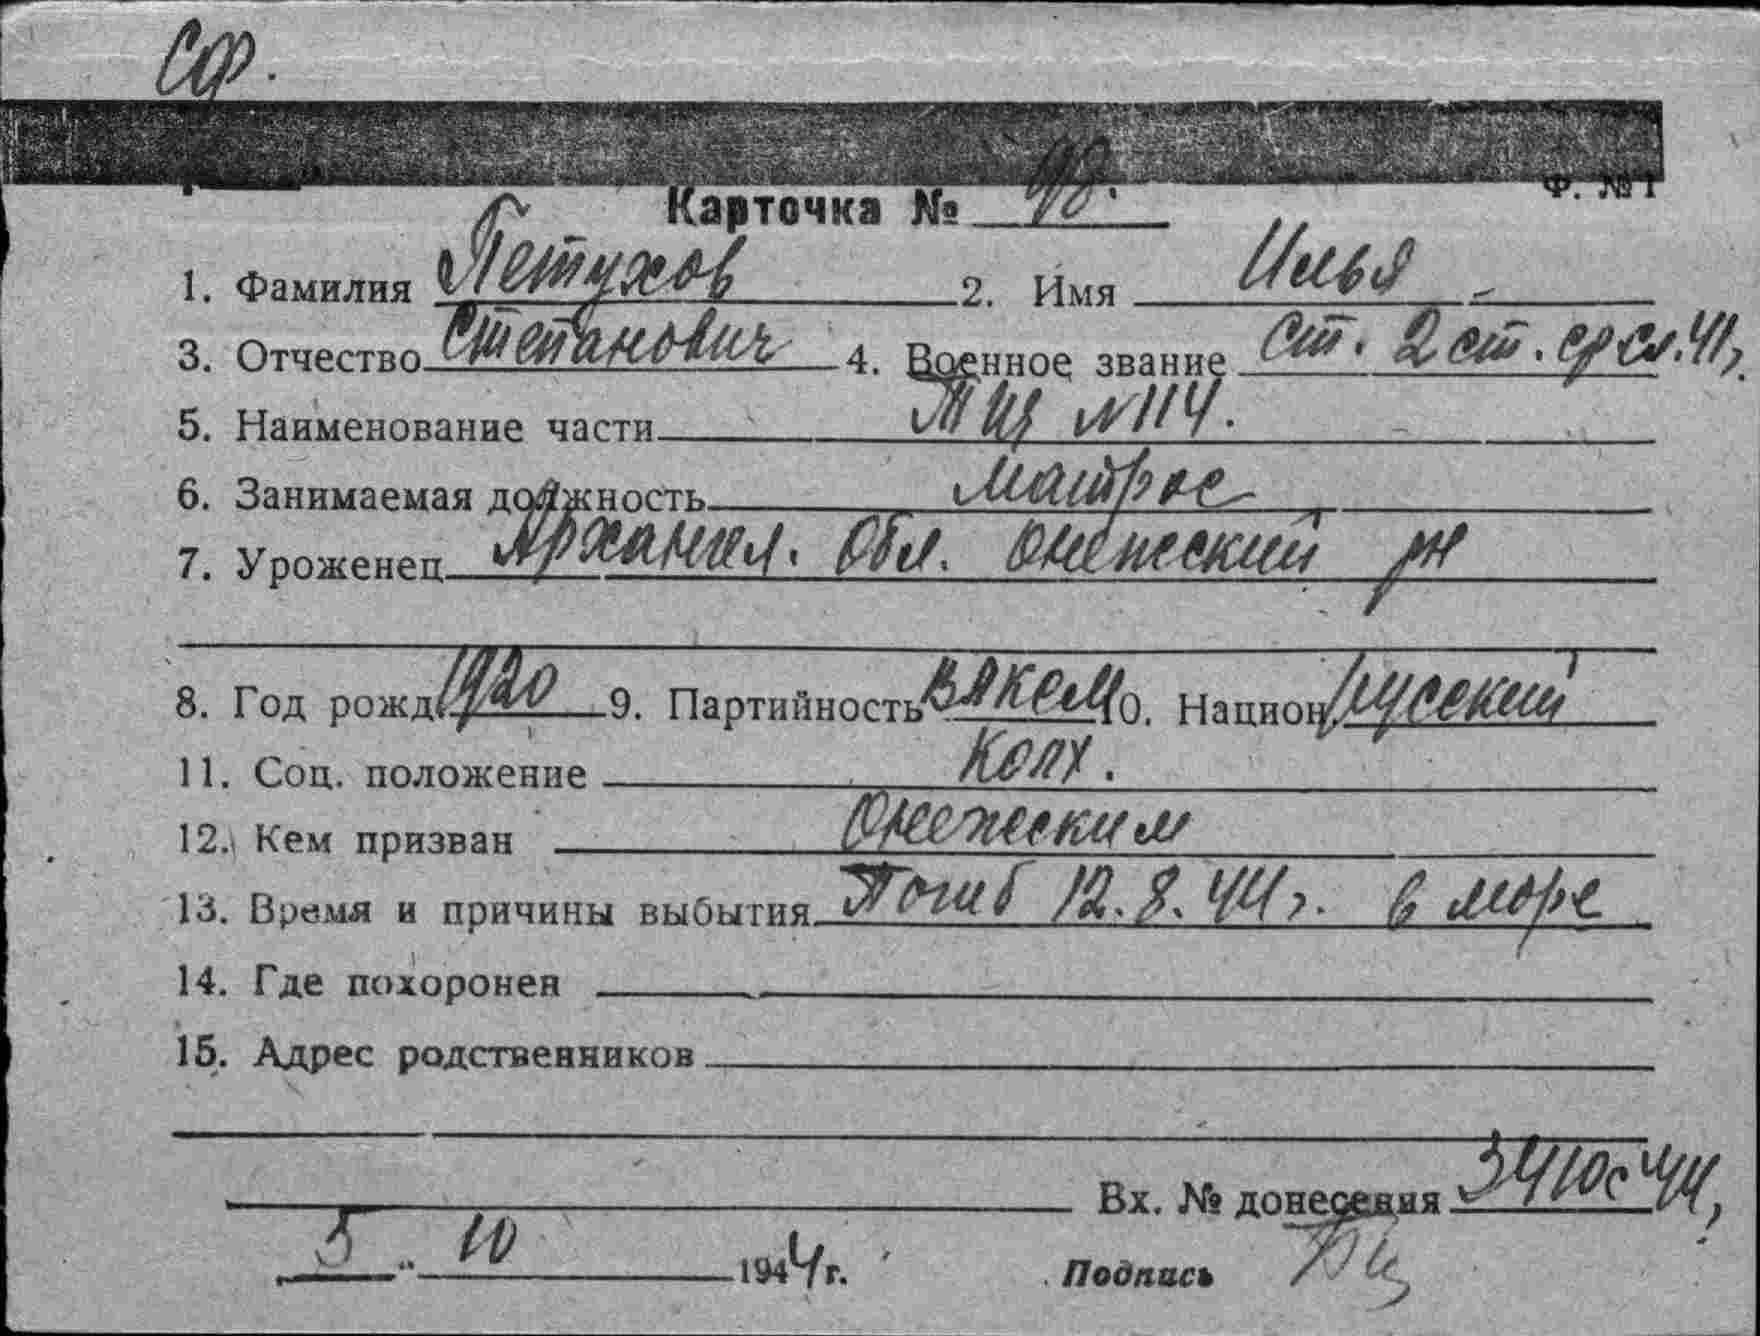 СФ.
Ф. № 1
Карточка № 98.
1. Фамилия Петухов 2. Имя Илья
3. Отчество Степанович 4. Военное звание Ст. 2 ст. ср сл. 41г.
5. Наименование части ТЩ №114.
6. Занимаемая должность матрос
7. Уроженец Архангел. Обл. Онежский рн
8. Год рожд. 1920 9. Партийность ВЛКСМ 10. Национ. русский
11. Соц. положение Колх.
12. Кем призван Онежским
13. Время и причины выбытия Погиб 12.8.44г. в море
14. Где похоронен
15. Адрес родственников
Вх. № донесения 3410с 44г
5 " 10 1944г. Подпись